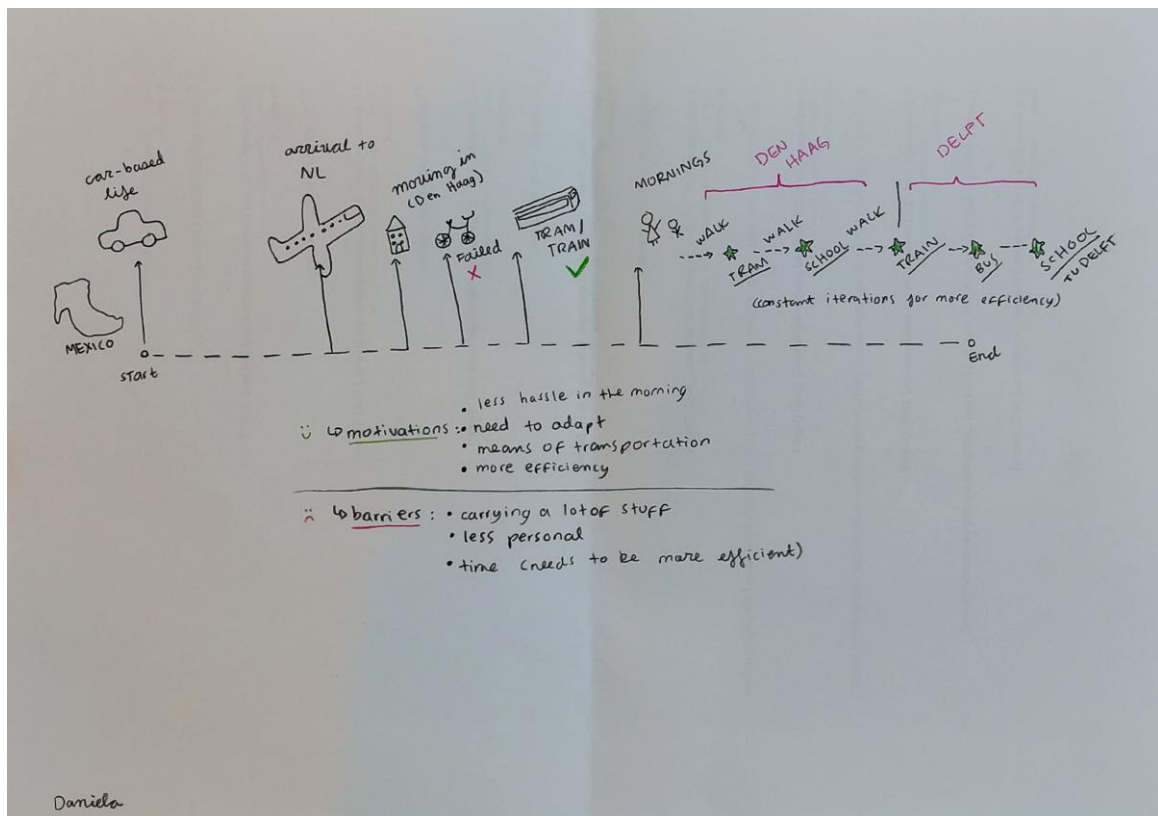 car-based
life
MEXICO
start
arrival to
NL
moving in
(Den Haag)
Failed
X
TRAM/
TRAIN
MORNINGS
DEN
HAAG
DELFT
WALK
TRAM
WALK
SCHOOL
WALK
TRAIN
BUS
SCHOOL
TU DELFT
(constant iterations for more efficiency)
End
motivations :
• less hassle in the morning
• need to adapt
• means of transportation
• more efficiency
barriers :
• carrying a lot of stuff
• less personal
• time (needs to be more efficient)
Daniela